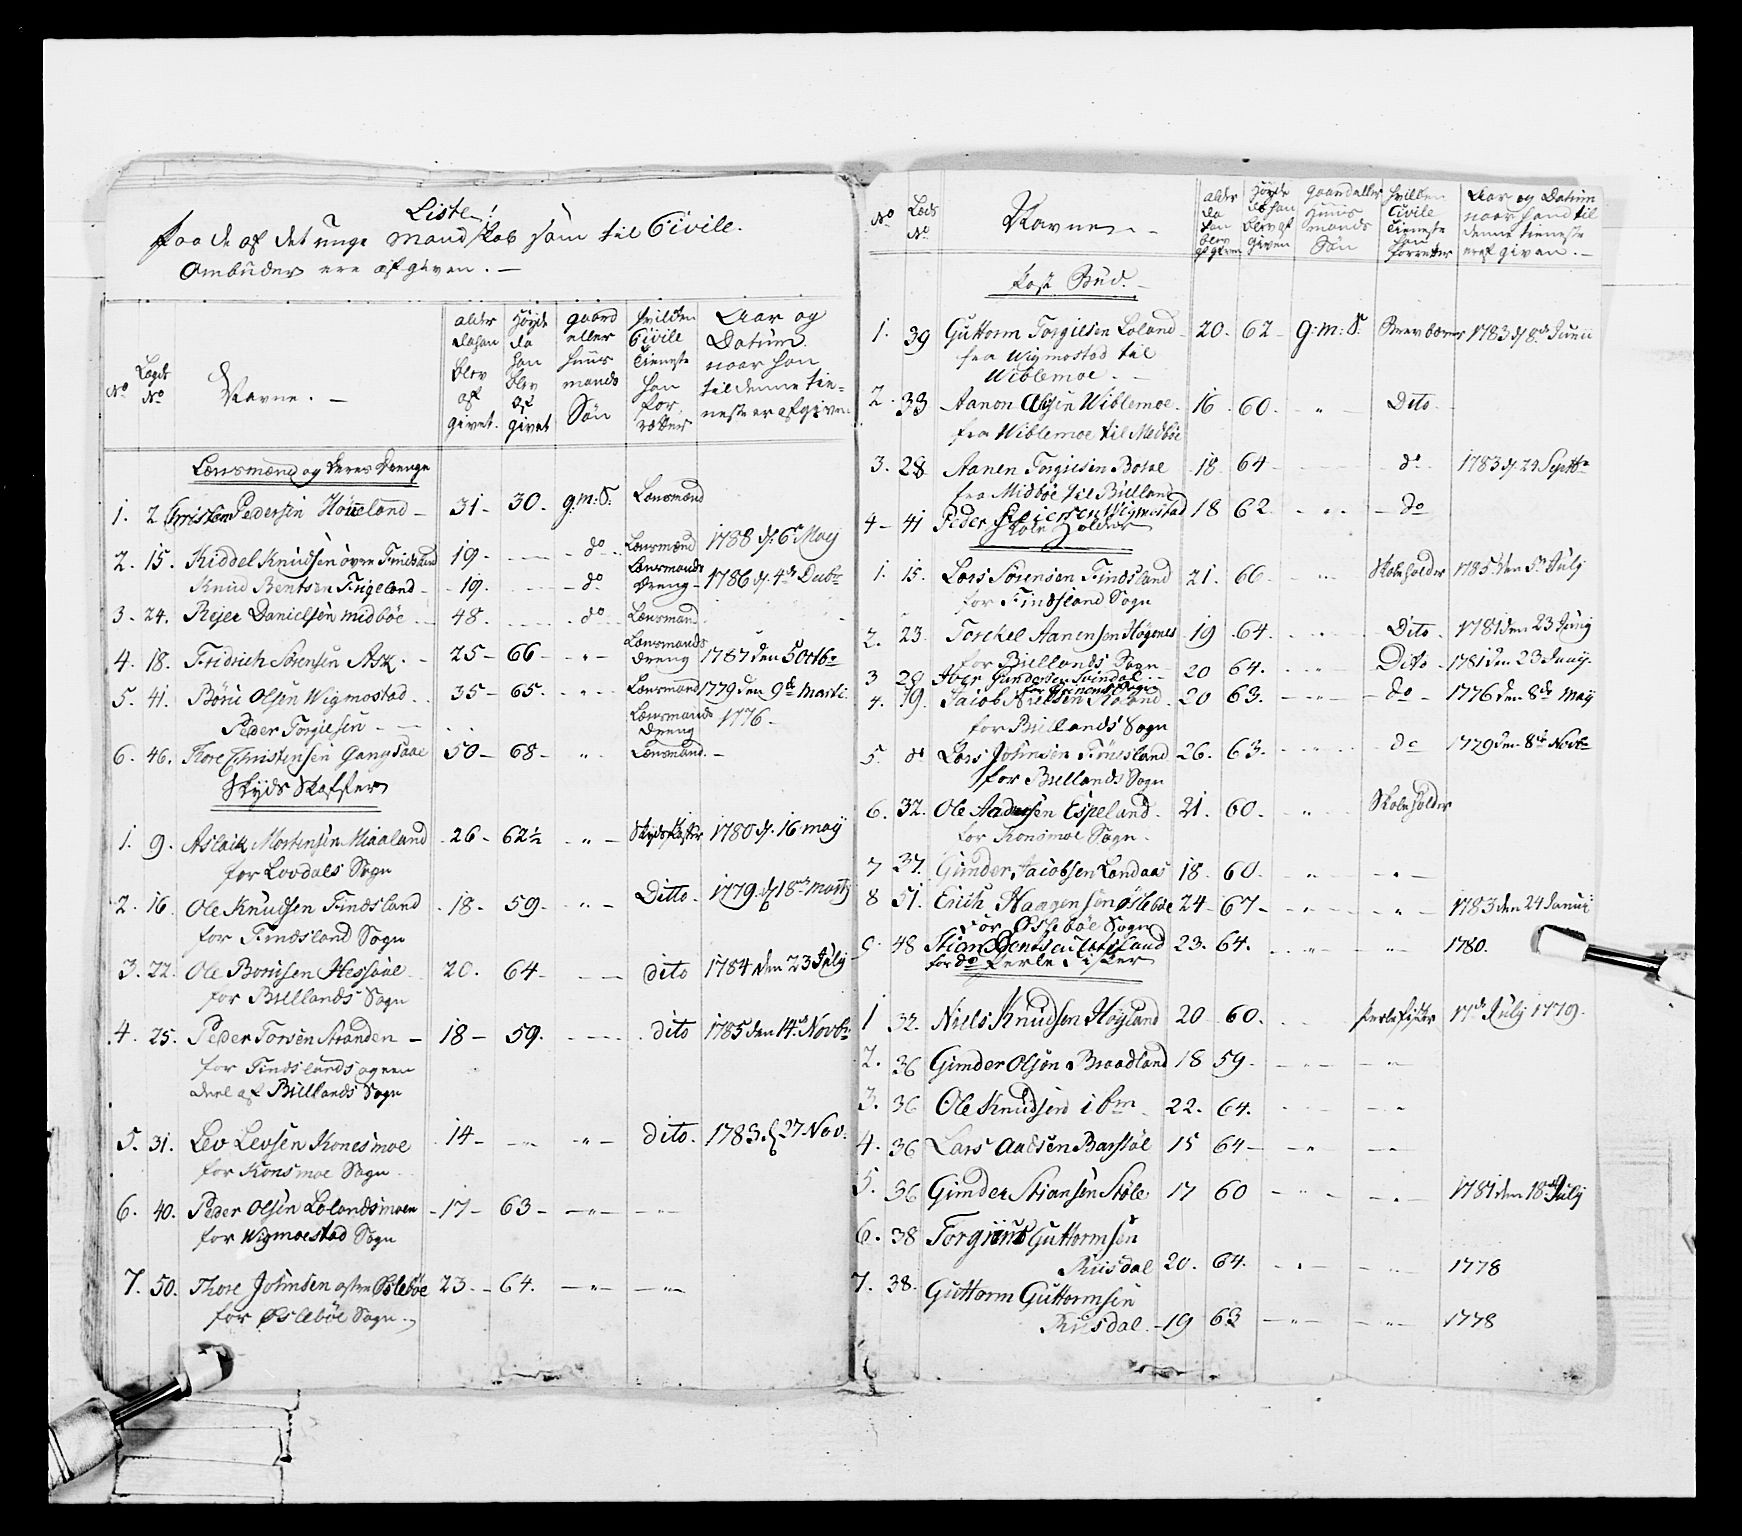 Liste!
paa de af det unge Mandskab som til Civile
Ombuder ere afgiven. —
No | Lægds No | Navne. — | alder da han blev af givet. | Høyde da han blev af givet | gaard eller Huus mands Søn | hvilken Civile Tieneste han for retter | Aar og Datum naar han til denne tieneste er afgiven
Lænsmænd og deres Drenge
1. 2 Christen Pedersen Høyeland — 31 — 30. g:m:S. Lænsmand
2. 15. Kiddel Knudsen øvre Findsland 19. — do Lænsmand 1788 d. 6te May
Knud Bentsen Tigeland — 19. — do Lænsmands Dreng — 1786 d. 4de Decbr
3. 24. Rejer Danielsen Midbøe 48. do Lænsmand
4. 18. Fridrich Sørensen Ask. — 25 — 66 — " — Lænsmands Dreng 1787 den 5 Octbr
5. 41. Børu Olsen Wigmostad 35 — 65. — " — Lænsmand 1779 den 9de Marti
Peder Torgiesen — Lænsmands Dreng 1776 —
6. 46. Tore Christensen Gangsaae 50 — 68 — " Lænsmand. —
Skyds Skaffter
1. 9. Aslack Mortensen Maaland 26 — 62½ — " — Skydskafter 1780 d. 16 maij
for Lovdals Sogn
2. 16. Ole Knudsen Findsland 18 — 59. — " — Ditto. 1779 d 18de martj
for Findsland Sogn
3. 22. Ole Borusen Hessaae 20. 64 — dito 1784 den 23 July
for Biellands Sogn
4. 25. Peder Torsen Stranden — 18 — 59. dito 1785 den 14de Novbr
for Findslands og een
Deel af Biellands Sogn
5. 31. Lev Levsen Konesmoe 14 — " — dito. 1783. d 27 Nov.
for Konsmoe Sogn
6. 40. Peder Olsen Lølandsmoen — 17 — 63 — " — " —
for Wigmoestad Sogn
7. 50. Thore Johnsen østre Øslebøe 23. — 64. — " — " —
for Øslebøe Sogn.
No | Lægds No | Navne. — | alder da han blev af given | Høyde da han blev af given | Gaard eller Huus mands Søn | hvilken Civile Tieneste han forretter | Aar og Datum naar hand til denne tieneste er af given. —
Post Bud. —
1. 39 Guttorm Torgilsen Løland 20. 62 — g:m:S. Brev bærer 1783 d 8de Junii
fra Wigmostad til
Wiblemoe. —
2. 33 Aanon Wiblemoe. 16. 60. " Dito.
fra Wiblemoe til Medbøe
3. 28 Aanen Torgiesen 18. 64 do. 1783 d. 24 Septbr
fra Midbøe til Bielland
4 — 41 Peder Wigmostad 18 62. " — do
Skole Holder
1. 15. Lars Sørensen Findsland 21. 66 Skoleholder 1785 den 5te July
for Findsland Sogn
2. 23. Torckel Aanensen Høgenes 19 64. Dito. 1781 den 23 Junij
for Biellands Sogn
3 28 Iver Gundersen Svindal. — 20 64. " Dito 1781 den 23 Junij.
for Grinems Sogn
4. 19. Jacob Røland 20 63. do — 1776 den 8de Maij
for Biellands Sogn
5. do Lars Johnsen Fiøesland 26. 63. do 1779 den 8de Novbr
for Biellands Sogn
6. 32. Ole Aadnesen Espeland 21. 60. " Skoleholder
for Konsmoe Sogn.
7 37. Gunder Jacobsen Landaas 18. 60. " "
8 51. Erich Haagensen Øslebøe 24 — 67 — " — " — 1783 den 24 Januj
for Øslebøe Sogn
9. 48 Stian Bentsen 23. 64. " " 1780.
for do Perle Fisker
1 32. Niels Knudsen Høyland 20 60. Perlefisker 17de July 1779.
2. 36 Gunder Olsøn Braadland 18 59. — " — " —
3. 36 Ole Knudsen ibm 22. 64. " "
4. 36 Lars Aadsen Barstøl 15 64 — " — " —
5. 36 Gunder Stiansen Støle 17 60 — " — 1781 den 18de July
6. 38 Torgiuus Guttormsen
Riisdal 20. 64. " " 1778
7. 38. Guttorm Guttormsen
Riisdal. — 19 63 — " — " — 1778